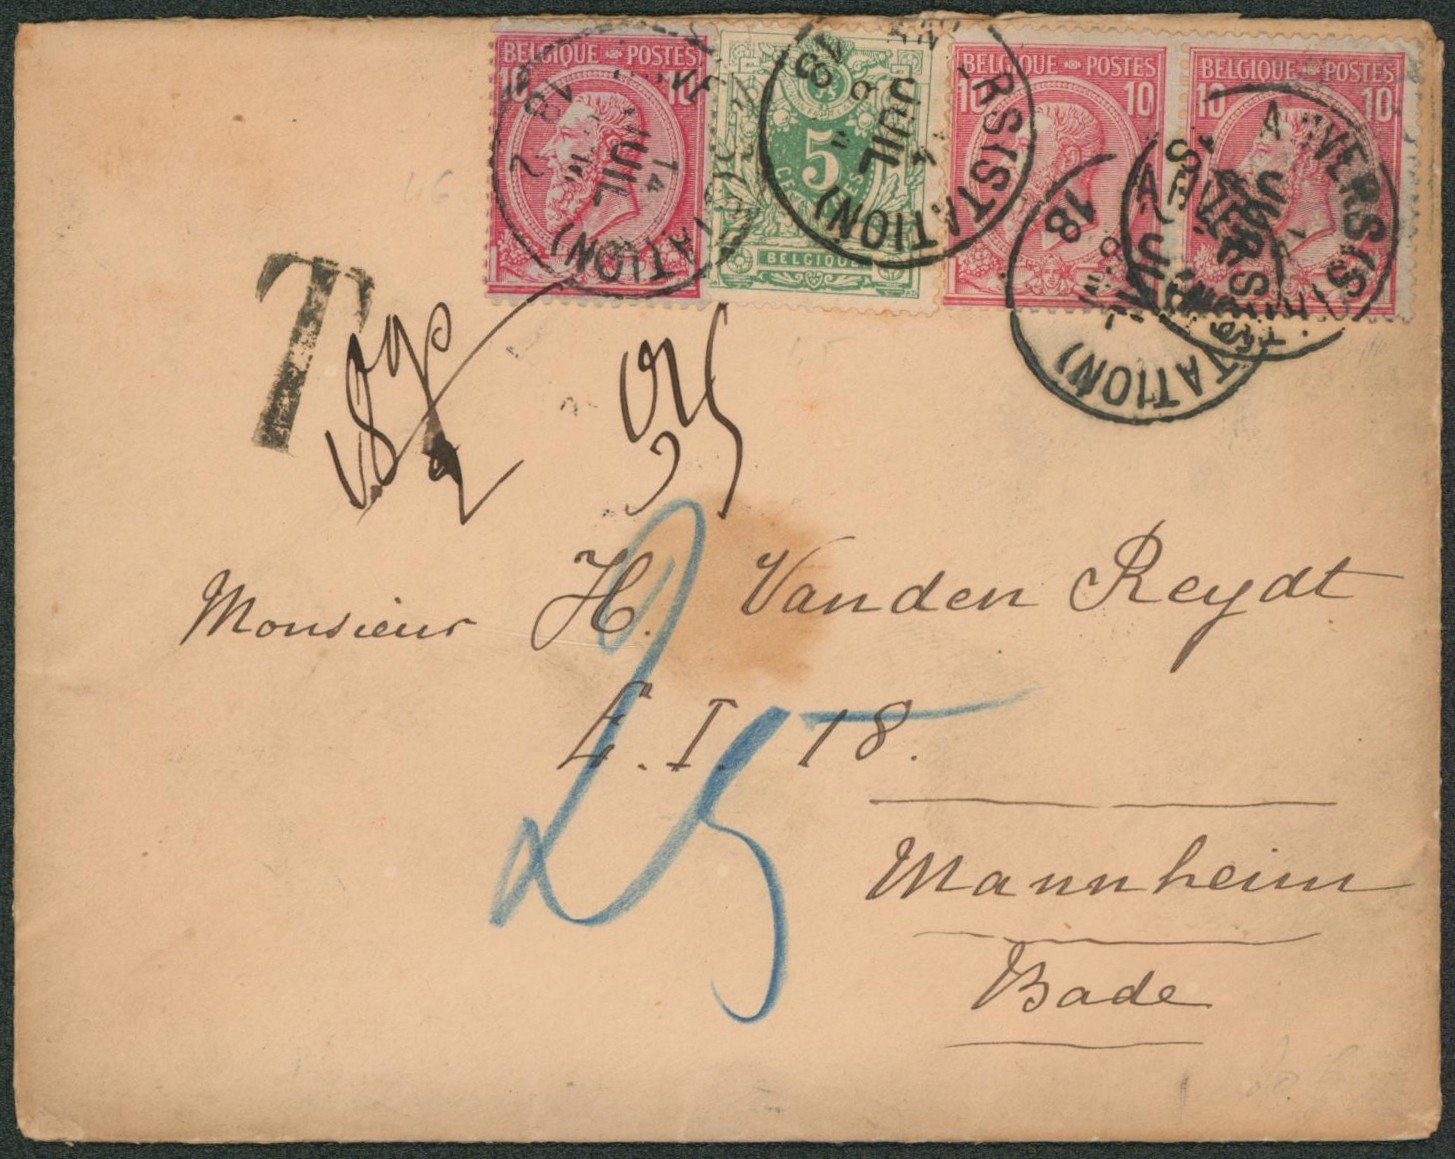 BELGIQUE POSTES
10 10
5
CENTIMES
BELGIQUE
BELGIQUE POSTES
10 10
BELGIQUE POSTES
10 10
14
JUIL
(STATION)
JUIL
18
RS(STATION)
ANVERS(STATION)
18
(STATION)
T
Monsieur H. Vanden Reydt
E. I. 18.
25
Mannheim
Bade